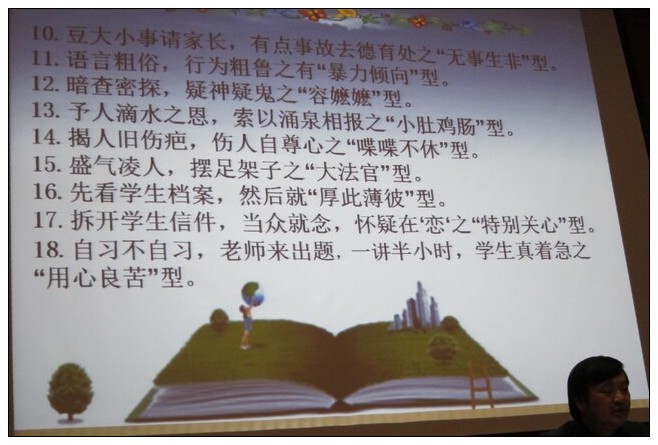 10. 豆大小事请家长，有点事故去德育处之“无事生非”型。
11. 语言粗俗，行为粗鲁之有“暴力倾向”型。
12. 暗查密探，疑神疑鬼之“容嬷嬷”型。
13. 予人滴水之恩，索以涌泉相报之“小肚鸡肠”型。
14. 揭人旧伤疤，伤人自尊心之“喋喋不休”型。
15. 盛气凌人，摆足架子之“大法官”型。
16. 先看学生档案，然后就“厚此薄彼”型。
17. 拆开学生信件，当众就念，怀疑在‘恋’之“特别关心”型。
18. 自习不自习，老师来出题，一讲半小时，学生真着急之
“用心良苦”型。